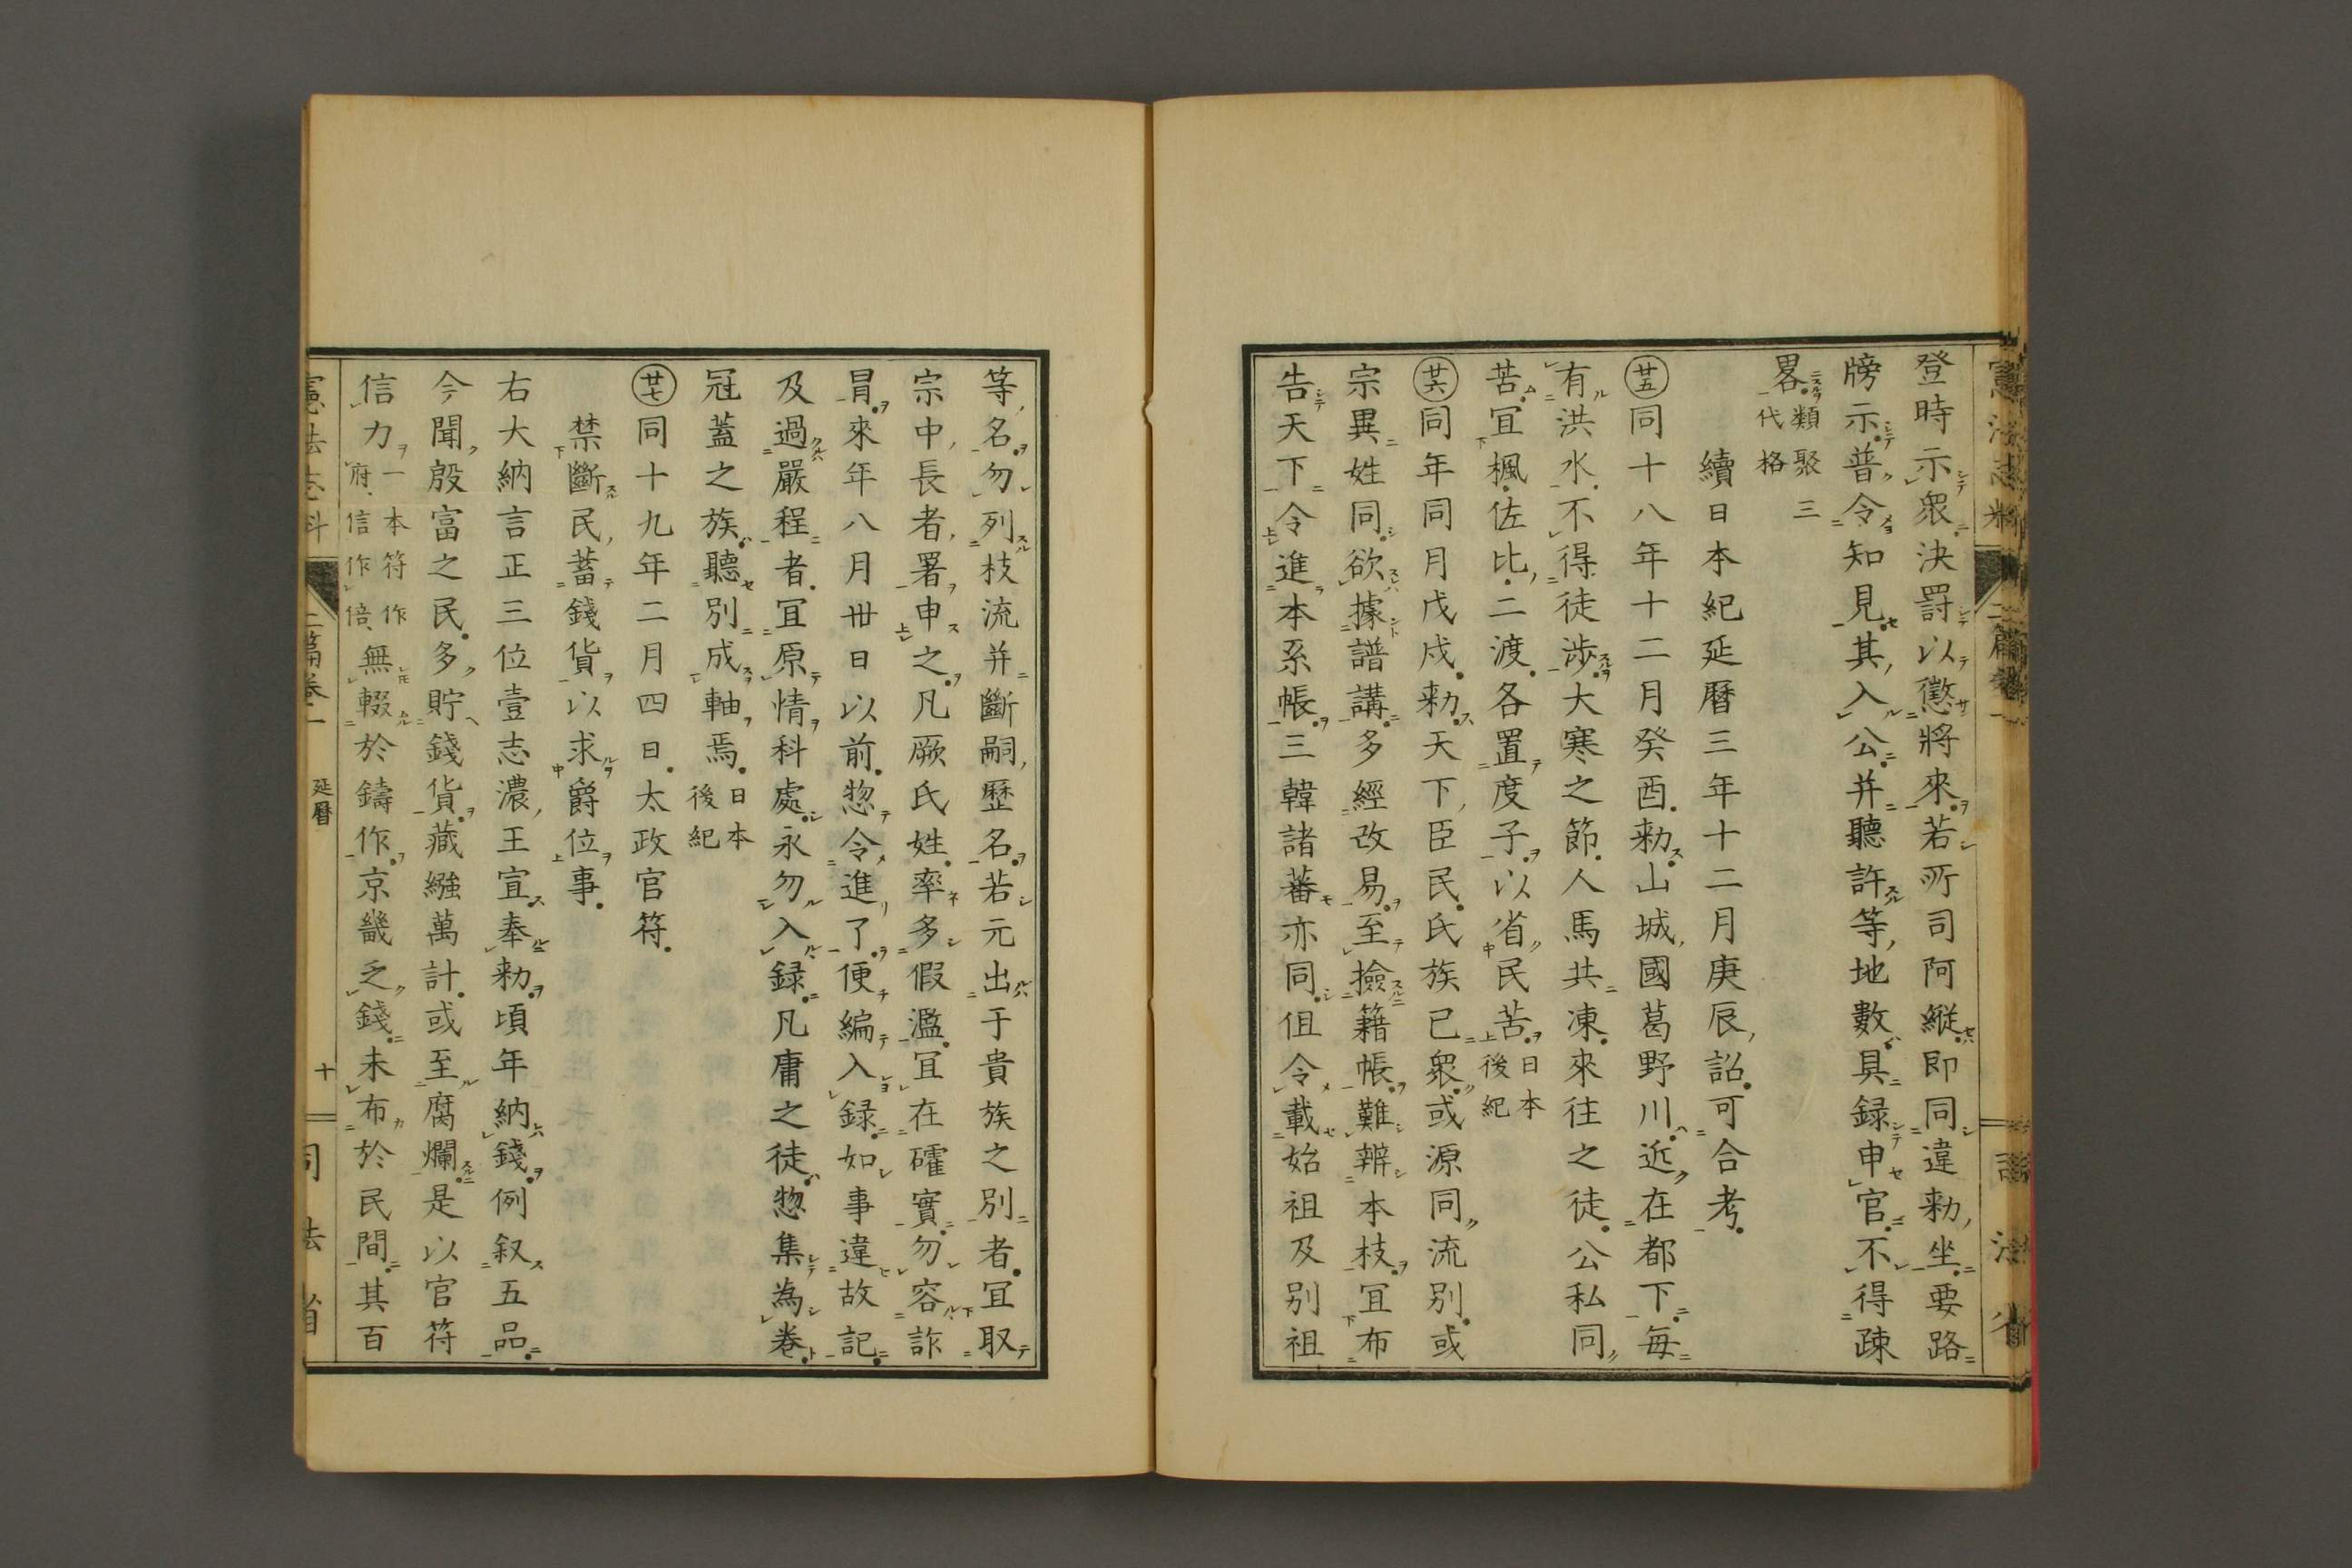 登時示衆決罸以懲將來若所司阿縱即同違勅坐要路
牓示普令知見其入公并聽許等地數具録申官不得疎
畧類聚三代格
續日本紀延曆三年十二月庚辰詔可合考
廿五同十八年十二月癸酉勅山城國葛野川近在都下每
有洪水不得徒涉大寒之節人馬共凍來往之徒公私同
苦宜楓佐比二渡各置度子以省民苦日本後紀
廿六同年同月戊戌勅天下臣民氏族已衆或源同流別或
宗異姓同欲據譜講多經改易至撿籍帳難辨本枝宜布
告天下令進本系帳三韓諸蕃亦同但令載始祖及別祖
等名勿列枝流并斷嗣歷名若元出于貴族之別者宜取
宗中長者署申之凡厥氏姓率多假濫宜在礭實勿容詐
冒來年八月卅日以前惣令進了便編入録如事違故記
及過嚴程者宜原情科處永勿入録凡庸之徒惣集為卷
冠蓋之族聽別成軸焉日本後紀
廿七同十九年二月四日太政官符
禁斷民蓄錢貨以求爵位事
右大納言正三位壹志濃王宣奉勅頃年納錢例叙五品
今聞殷富之民多貯錢貨藏繦萬計或至腐爛是以官符
信力一本符作府信作倍無輟於鑄作京畿乏錢未布於民間其百
憲法志料 二篇卷一 延曆 十 司法省